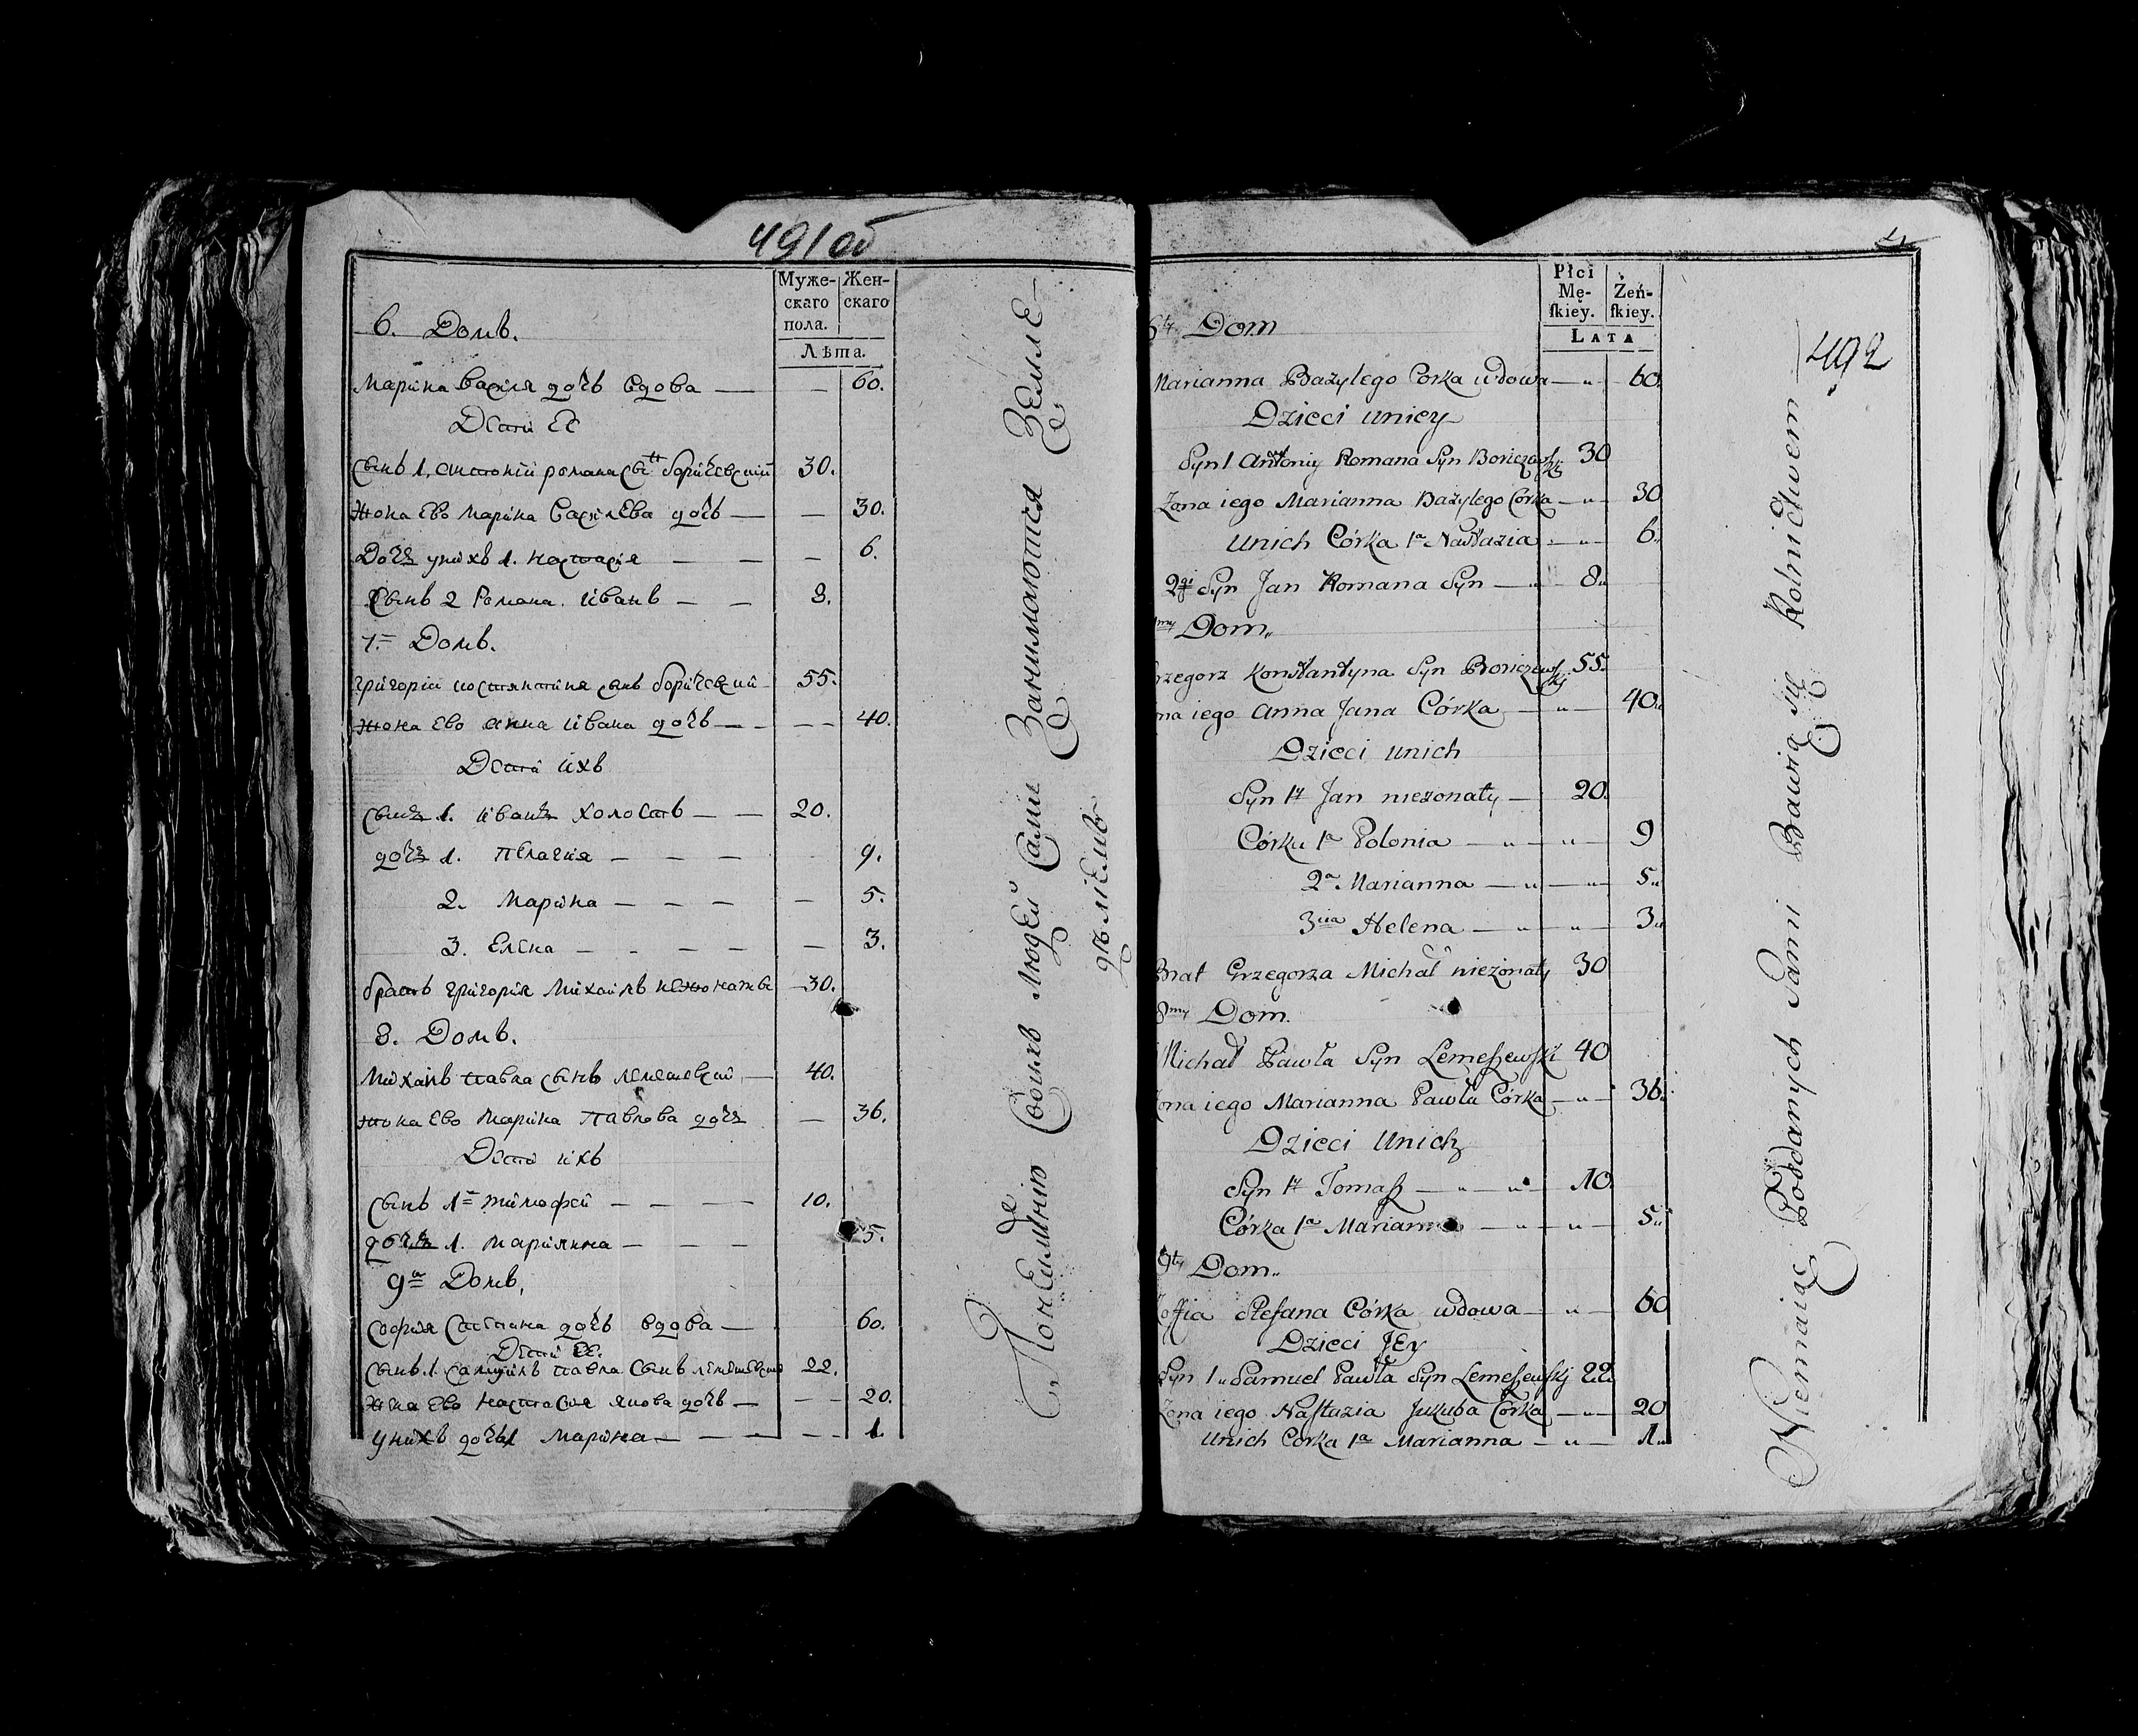 491об
Муже-
скаго
пола.
Жен-
скаго
Лѣта.
6. Домъ.
Марина Васіля дочь вдова — — 60.
Дети ее
Сынъ 1. антоній романа сынъ боричевскій 30.
Жона Ево Марина Василева дочь — — 30.
Дочь унихъ 1. Настасія — — — 6.
Сынъ 2 Романа. Иванъ — — 8.
7. Домъ.
григорій костянтина сынъ боричевский 55.
Жона Ево анна ивана дочь — — — 40.
Дети ихъ
Сынъ 1. иванъ холостъ — — 20.
дочь 1. пелагия — — — 9.
2. Марина — — — — 5.
3. Елена — — — — — 3.
братъ григория Михаилъ нежонатъ — 30.
8. Домъ.
Михаилъ павла сынъ лемешевский — 40.
жона Ево Марина Павлова дочь — 36.
Дети ихъ
Сынъ 1 тимофей — — — 10.
дочь 1. Мариянна — — — 5.
9 Домъ.
София Степана дочь вдова — 60.
Дети ее.
Сынъ 1. Самуилъ павла Сынъ лемешевский 22.
Жона Ево Настасия якова дочь — — — 20.
унихъ дочь 1 Марина — — — — — 1.
Поне имѣнию Своихъ Людей Сами Занимаются Земле-
дѣлиемъ
4
492
Płci
Mę-
ſkiey.
Żeń-
ſkiey.
LATA
6ty Dom
Marianna Bazylego Corka wdowa — „ — 60.
Dzieci uniey
Syn 1 Antoniy Romana Syn Boriczewski 30
Zona iego Marianna Bazylego Córka — „ — 30
Unich Córka 1a Nastazia — „ — 6„
2gi Syn Jan Romana Syn — „ 8„
my Dom„
rzegorz Konstantyna Syn Boriczewskj 55.
na iego Anna Jana Córka — „ — 40„
Dzieci unich
Syn 1y Jan niezonaty — 20.
Córka 1a Polonia — „ — „ — 9
2a Marianna — „ — „ — 5„
3cia Helena — „ — „ — 3„
Brat Grzegorza Michał niezonaty 30
8my Dom.
Michał Pawła Syn Lemeszewski 40
ona iego Marianna Pawła Córka — „ — 36„
Dzieci Unich
Syn 1y Tomaſz — „ — „ — 10
Córka 1a Marianna — „ — „ — 5„
9ty Dom„
Zoffia Stefana Córka wdowa — „ — 60
Dzieci Jey
Syn 1„ Samuel Pawła Syn Lemeszewskj 22
Zona iego Naſtazia Jakuba Córka — „ — 20
Unich Corka 1a Marianna — „ — 1„
Niemaiąc Poddanych Sami Bawią się Rolnictwem